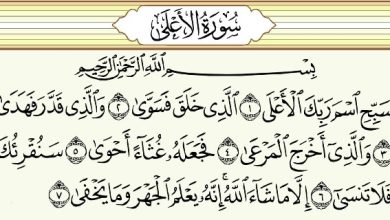 سُورَةُ الأَعْلَى
بِسْمِ اللَّهِ الرَّحْمَٰنِ الرَّحِيمِ
سَبِّحِ اسْمَ رَبِّكَ الْأَعْلَى ١ الَّذِي خَلَقَ فَسَوَّىٰ ٢ وَالَّذِي قَدَّرَ فَهَدَىٰ
٣ وَالَّذِي أَخْرَجَ الْمَرْعَىٰ ٤ فَجَعَلَهُ غُثَاءً أَحْوَىٰ ٥ سَنُقْرِئُكَ
فَلَا تَنسَىٰ ٦ إِلَّا مَا شَاءَ اللَّهُ ۚ إِنَّهُ يَعْلَمُ الْجَهْرَ وَمَا يَخْفَىٰ ٧